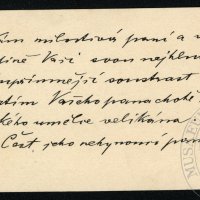 Vám milostivá paní a
dině Vaší svou nejhlu
upřímnější soustrast
tím Vašeho pana chotě,
kého umělce velikána
Čest jeho nehynoucí pam
MUSE